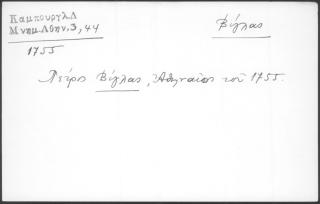 Καμπουργλ.Δ
Μνημ.Αθην.3,44
Βίγλας
1755
Πέτρος Βίγλας, Ἀθηναῖος τοῦ 1755.